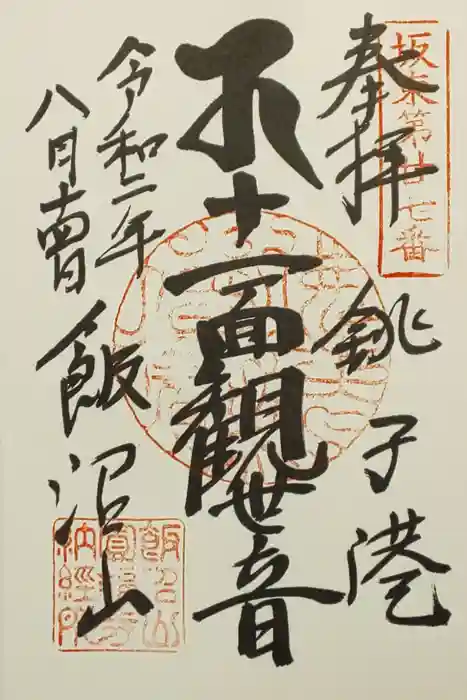 坂東第廿七番
奉拝
銚子港
十一面觀世音
令和二年
八月
飯沼山
飯沼山
圓福寺
納經所